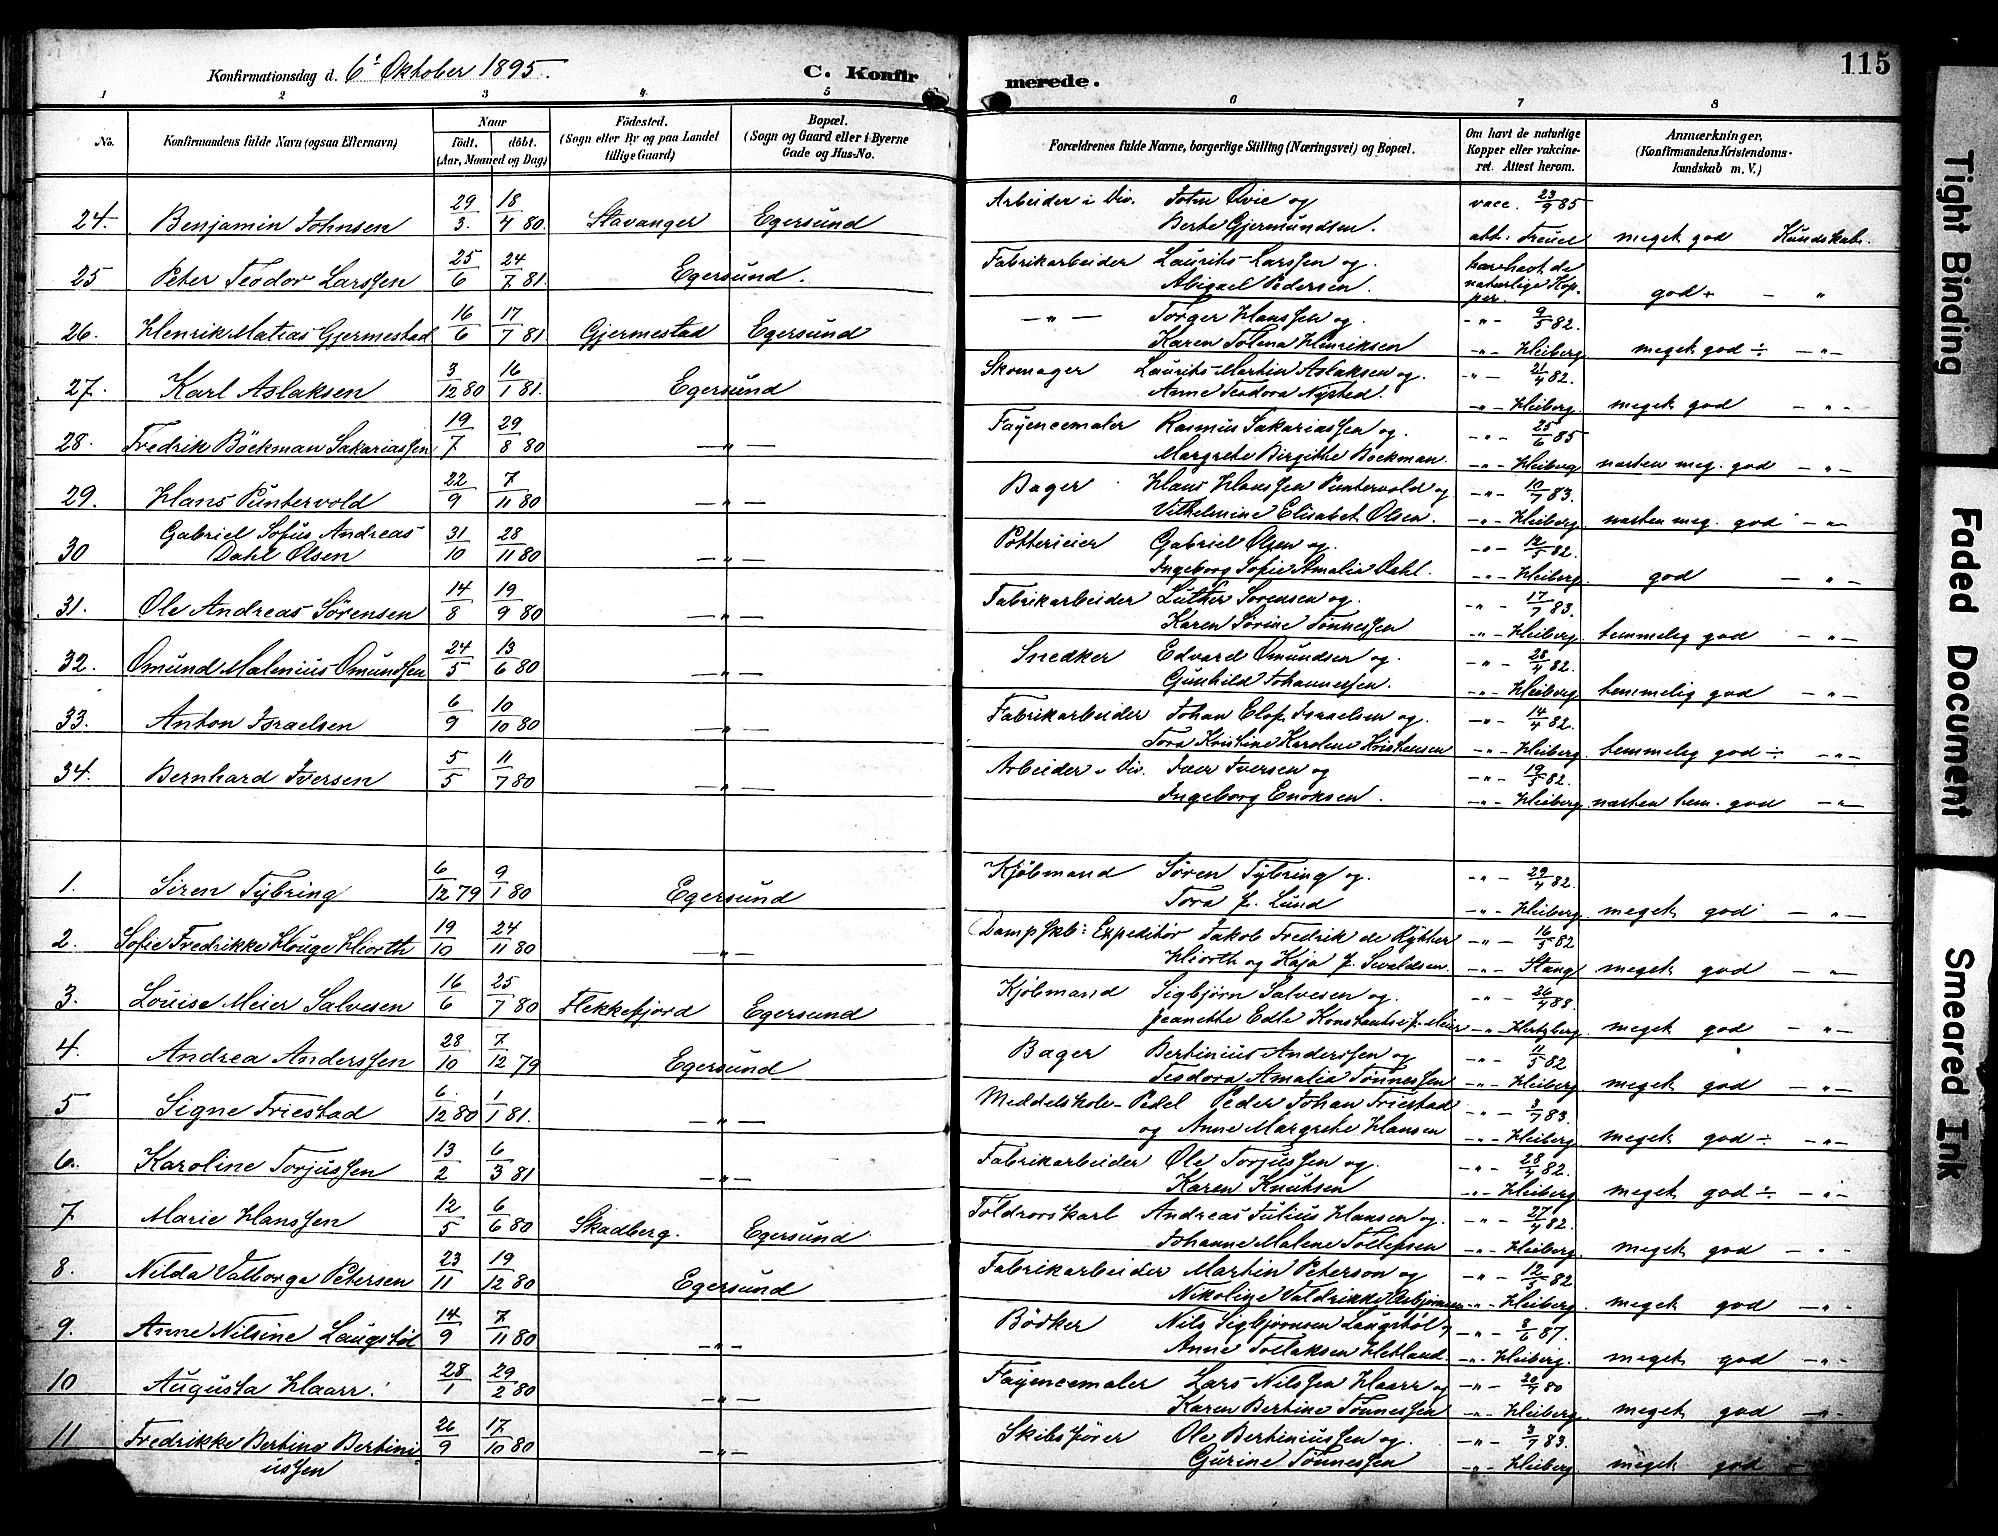 Konfirmationsdag d. 6te Oktober 1895. C. Konfirmerede. 115
1 2 3 4 5 6 7 8
No. Konfirmandens fulde Navn (ogsaa Efternavn) Naar födt. döbt. (Aar, Maaned og Dag) Födested. (Sogn eller By og paa Landet tillige Gaard) Bopæl. (Sogn og Gaard eller i Byerne Gade og Hus-No.) Forældrenes fulde Navne, borgerlige Stilling (Næringsvei) og Bopæl. Om havt de naturlige Kopper eller vakcineret. Attest herom. Anmærkninger. (Konfirmandens Kristendomskundskab m. V.)
24. Benjamin Johnsen 29/3 18/4 80 Stavanger Egersund Arbeider i Div. John Ovie og Berte Gjermundsen. vacc. 23/9 85 att: meget god Kundskab.
25 Peter Teodor Larssen 25/6 24/7 81. Egersund. Fabrikarbeider Laurits Larssen og Abigael Pedersen. har havt de naturlige Kopper. god + — „
26. Henrik Matias Gjermestad 16/6 17/7 81 Gjermestad Egersund —„— Torger Hanssen og Karen Tolena Henriksen -„- 9/5 82. -„- Heiberg. meget god ÷ —„—
27. Karl Aslaksen 3/12 80 16/1 81. Egersund Skomager Laurits Martin Aslaksen og Anne Teodora Nysted. -„- 21/4 82. -„- Heiberg. meget god —„—
28. Fredrik Böckman Sakariassen 19/7 29/8 80 —„— Fayencemaler Rasmus Sakariassen og Margrete Birgitte Böckman. -„- 25/6 85 -„- Heiberg næsten meg. god —„—
29. Hans Puntervold 22/9 7/11 80 —„— Bager Hans Hanssen Puntervold og Vilhelmine Elisabet Olsen. -„- 10/7 83. -„- Heiberg. næsten meg. god —„—
30 Gabriel Sofus Andreas Dahl Olsen 31/10 28/11 80 —„— Potterieier Gabriel Olsen og Ingeborg Sofie Amalia Dahl. -„- 12/5 82. -„- Heiberg. god —„—
31. Ole Andreas Sörensen 14/8 19/9 80 —„— Fabrikarbeider Luther Sorensen og Karen Sörine Tönnessen -„- 17/7 83. -„- Heiberg. temmelig god —„—
32. Omund Malenius Omundsen 24/5 13/6 80 —„— Snedker Edvard Omundsen og Gunhild Johannessen. -„- 28/4 82. -„- Heiberg temmelig god —„—
33. Anton Israelsen 6/9 10/10 80 —„— Fabrikarbeider Johan Elof Israelsen og Tora Kristine Karolene Kristensen -„- 14/4 82. -„- Heiberg. temmelig god ÷ —„—
34. Bernhard Iversen 5/5 11/7 80 —„— Arbeider i Div. Iver Iversen og Ingeborg Enoksen. -„- 19/5 82. -„- Heiberg. næsten tem. god —„—
1. Siren Tybring 6/12 79 9/1 80 Egersund Kjöbmand Sören Tybring og Tora f. Lund -„- 29/4 82. -„- Heiberg. meget god —„—
2. Sofie Fredrikke Houge Hiorth 19/10 24/11 80 —„— Dampskb: Expeditör Jakob Fredrik de Rytter Hiorth og Kaja f. Sivaldsen. -„- 16/5 82 -„- Stang meget god —„—
3. Louise Meier Salvesen 16/6 25/7 80 Flekkefjord Egersund Kjöbmand Sigbjörn Salvesen og Jeanette Edle Konstantse f. Meier -„- 26/4 88 -„- Hertzberg. meget god —„—
4. Andrea Anderssen 28/10 7/12 79 Egersund Bager Bertinius Anderssen og Teodora Amalia Tönnessen -„- 11/5 82 -„- Heiberg. meget god —„—
5 Signe Friestad 6/12 80 1/1 81. —„— Meddelskole-Pedel Peder Johan Friestad og Anne Margrete Hansen -„- 3/7 83. -„- Heiberg. meget god ÷ —„—
6. Karoline Torjussen 13/2 6/3 81 —„— Fabrikarbeider Ole Torjussen og Karen Knutsen -„- 28/4 82. -„- Heiberg meget god ÷ —„—
7 Marie Hanssen 12/5 6/6 80 Skadberg. Egersund Toldrorskarl Andreas Julius Hansen og Johanne Malene Tollefsen -„- 27/4 82. -„- Heiberg. meget god —„—
8. Nilda Valborga Petersen 23/11 19/12 80 Egersund Fabrikarbeider Martin Peterson og Nikoline Valdrikke Asbjörnsen -„- 12/5 82 -„- Heiberg. meget god —„—
9. Anne Nilsine Laugstöl 14/9 7/11 80 —„— Bödker Nils Sigbjörnsen Laugstöl og Anne Tollaksen Hetland. -„- 3/6 87. -„- Heiberg. meget god —„—
10 Augusta Haarr. 28/1 29/2 80 —„— Fayencemaler Lars Nilssen Haarr og Karen Bertine Tönnessen -„- 20/7 80 -„- Heiberg. meget god —„—
11 Fredrikke Bertine Bertiniussen 26/9 17/10 80 —„— Skibsförer Ole Bertiniussen og Gurine Tönnessen -„- 3/7 83. -„- Heiberg meget god
Tight Binding
Faded Document
Smeared Ink